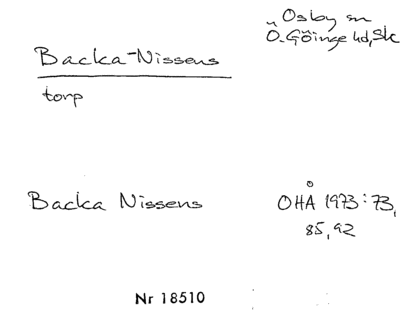 Osby sn
Ö. Göinge hd, Sk
Backa-Nissens
torp
Backa Nissens
OHÅ 1973:73,
85, 92
Nr 18510